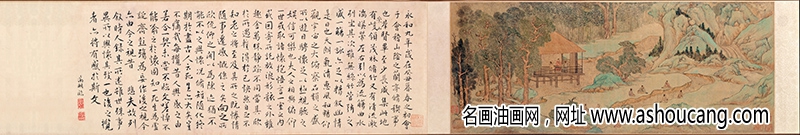 永和九年歲在癸丑暮春之初會
于會稽山陰之蘭亭脩稧事
也羣賢畢至少長咸集此地
有崇山峻領茂林脩竹又有清流激
湍暎帶左右引以為流觴曲水
列坐其次雖無絲竹管弦之
盛一觴一詠亦足以暢敘幽情
是日也天朗氣清惠風和暢仰
觀宇宙之大俯察品類之盛
所以遊目騁懷足以極視聽之
娛信可樂也夫人之相與俯仰
一世或取諸懷抱悟言一室之內
或因寄所託放浪形骸之外雖
趣舍萬殊靜躁不同當其欣
於所遇暫得於己快然自足不
知老之將至及其所之既惓情
隨事遷感慨係之矣向之所
欣俛仰之間以為陳迹猶不
能不以之興懷況脩短隨化終
期於盡古人云死生亦大矣豈
不痛哉每攬昔人興感之由
若合一契未嘗不臨文嗟悼不
能喻之於懷固知一死生為虛
誕齊彭殤為妄作後之視今
亦由今之視昔悲夫故列
敘時人錄其所述雖世殊事
異所以興懷其致一也後之攬
者亦將有感於斯文
名画油画网，网址：
www.ashoucang.com